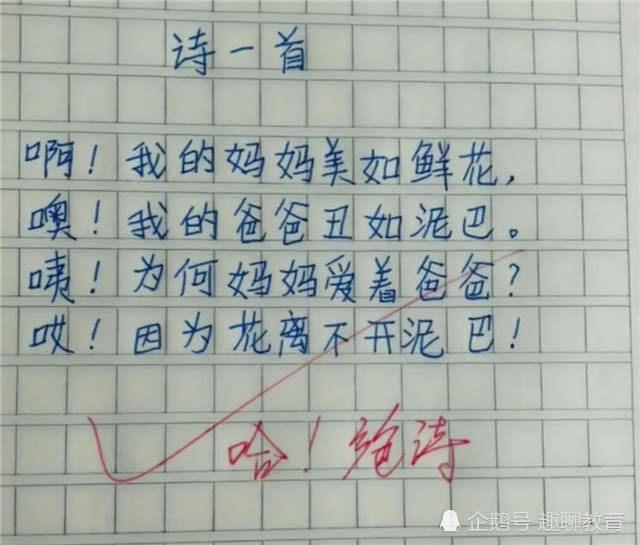 诗一首
啊！我的妈妈美如鲜花，
噢！我的爸爸丑如泥巴。
咦！为何妈妈爱着爸爸？
哎！因为花离不开泥巴！
哈！绝诗
企鹅号 趣聊教育